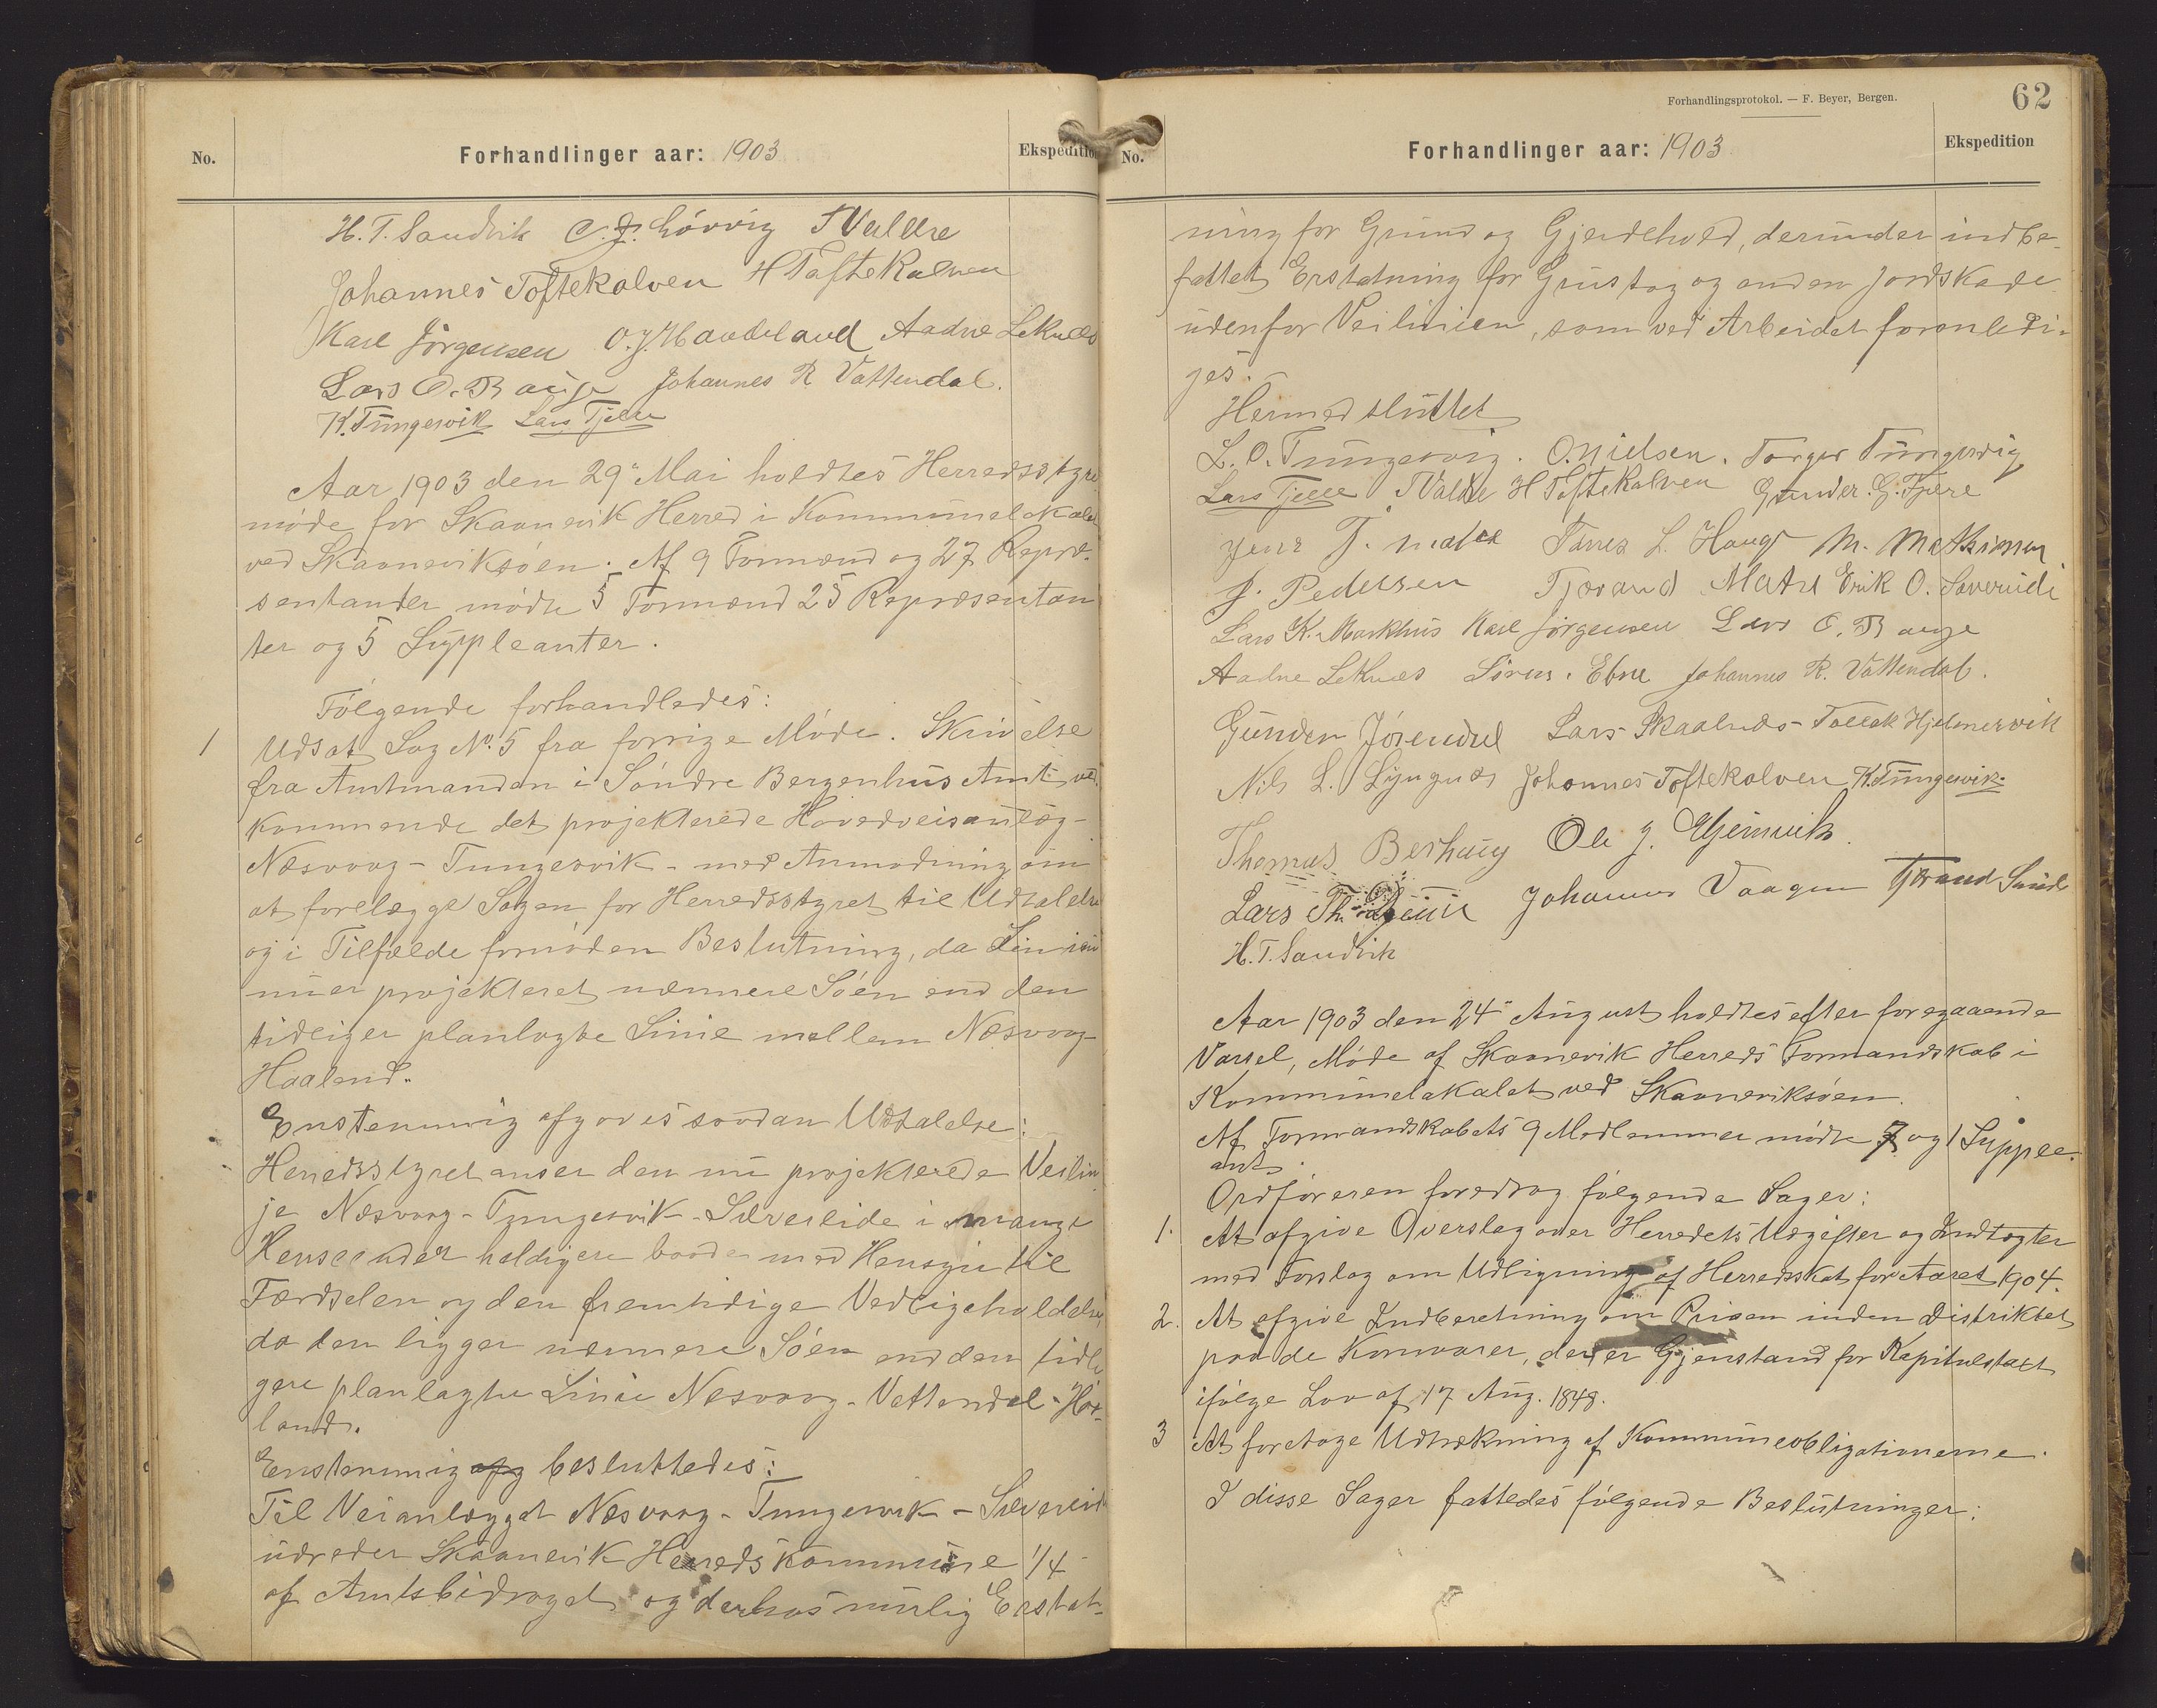 No.
Forhandlinger aar: 1903
Ekspedition
H. T. Sandvik C. J. Løvvig T Valdre
Johannes Toftekalven H Toftekalven
Karl Jørgensen O. J. Mandeland Aadne Leknes
Lars O. Bauge Johannes R Vattendal.
K. Tungesvik Lars Tjelle
Aar 1903 den 29" Mai holdtes Herredsstyre
møde for Skaanevik Herred i Kommunelokalet
ved Skaaneviksøen. Af 9 Formænd og 27 Repræ-
sentanter mødte 5 Formænd 25 Repræsentan
ter og 5 Suppleanter.
Følgende forhandledes:
1 Udsat Sag No. 5 fra forrige Møde. Skrivelse
fra Amtmanden i Søndre Bergenhus Amt ved-
kommende det projekterede Hovedveisanlæg-
Næsvaag - Tungesvik - med Anmodning om
at forelægge Sagen for Herredsstyret til Udtalelse
og i Tilfælde fornøden Beslutning, da Linien
nu er projekteret nærmere Søen end den
tidliger planlagte Linie mellem Næsvaag-
Haaland.
Enstemmig afgaves saadan Udtalelse:
Herredsstyret anser den nu projekterede Veilin
je Næsvaag - Tungesvik - Sævereide i mange
Henseender heldigere baade med Hensyn til
Færdselen og den fremtidige Vedligeholdelse
da den ligger nærmere Søen end den tidli
gere planlagte Linie Næsvaag - Vattendal - Haa-
land.
Enstemmig afg besluttedes:
Til Veianlægget Næsvaag - Tungesvik - Sævereide
udreder Skaanevik Herredskommune 1/4
af Amtsbidraget og derhos mulig Erstat-
Forhandlingsprotokol. — F. Beyer, Bergen.
62
No.
Forhandlinger aar: 1903
Ekspedition
ning for Grund og Gjerdehold, derunder indbe-
fattet Erstatning for Grustag og anden Jordskade
udenfor Veilinien, som ved Arbeidet foranledi-
ges.
Hermed sluttet
L. O. Tungesvig. O. Nielsen. Torger Tungesvig
Lars Tjelle T Valdre H Toftekalven Gunder. G. Fjære
Jens T. Matre Tørres L. Haug M. Mathiesen
J. Pedersen Tjerand Matre Erik O. Sævereide
Lars K. Markhus Karl Jørgensen Lars O. Bauge
Aadne Leknes Søren. Ebne Johannes R. Vattendal.
Gunder Jørendal Lars Skaalnes Tollak Hjelmervik
Nils L. Lyngnes Johannes Toftekalven K. Tungesvik.
Thomas Berhaug Ole J. Ejeinvik.
Lars Th. Johannes Vaagen Tjerand Sund
H. T. Sandvik
Aar 1903 den 24" August holdtes efter foregaaende
Varsel, Møde af Skaanevik Herreds Formandskab i
Kommunelokalet ved Skaaneviksøen.
Af Formandskabets 9 Medlemmer mødte 7 og 1 Supple-
ant.
Ordføreren foredrog følgende Sager:
1. At afgive Overslag over Herredets Udgifter og Indtægter
med Forslag om Udligning af Herredsskat for Aaret 1904.
2. At afgive Indberetning om Prisen inden Distriktet
paa de Kornvarer, der er Gjenstand for Kapitulstaxt
ifølge Lov af 17 Aug. 1848.
3 At foretage Udtrækning af Kommuneobligationerne.
I disse Sager fattedes følgende Beslutninger: